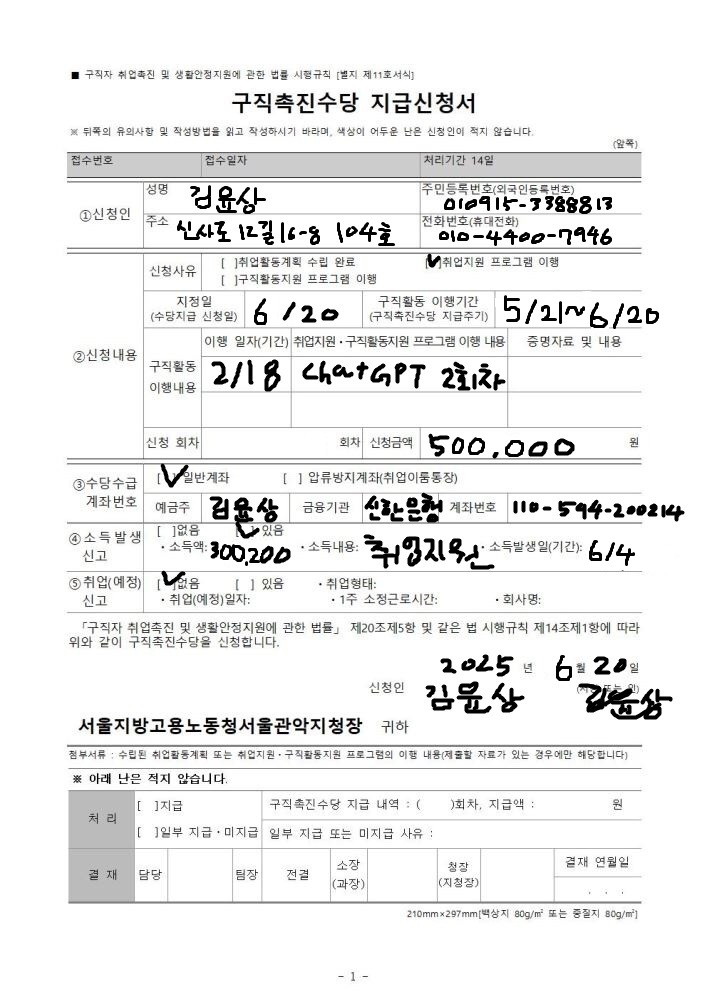 ■ 구직자 취업촉진 및 생활안정지원에 관한 법률 시행규칙 [별지 제11호서식]
구직촉진수당 지급신청서
※ 뒤쪽의 유의사항 및 작성방법을 읽고 작성하시기 바라며, 색상이 어두운 난은 신청인이 적지 않습니다.
(앞쪽)
접수번호 접수일자 처리기간 14일
①신청인
성명 김윤상 주민등록번호(외국인등록번호) 010915-3388813
주소 신사로 12길 16-8 104호 전화번호(휴대전화) 010-4400-7946
②신청내용
신청사유 [ ]취업활동계획 수립 완료 [✓]취업지원 프로그램 이행
[ ]구직활동지원 프로그램 이행
지정일 (수당지급 신청일) 6/20 구직활동 이행기간 (구직촉진수당 지급주기) 5/21~6/20
구직활동 이행내용
이행 일자(기간) 취업지원·구직활동지원 프로그램 이행 내용 증명자료 및 내용
2/18 ChatGPT 2회차
신청 회차 회차 신청금액 500,000 원
③수당수급 계좌번호
[✓]일반계좌 [ ] 압류방지계좌(취업이룸통장)
예금주 김윤상 금융기관 신한은행 계좌번호 110-594-200214
④소득발생 신고
[ ]없음 [✓] 있음
·소득액: 300,200 ·소득내용: 취업지원 ·소득발생일(기간): 6/4
⑤취업(예정) 신고
[✓]없음 [ ] 있음 ·취업형태:
·취업(예정)일자: ·1주 소정근로시간: ·회사명:
「구직자 취업촉진 및 생활안정지원에 관한 법률」 제20조제5항 및 같은 법 시행규칙 제14조제1항에 따라
위와 같이 구직촉진수당을 신청합니다.
2025 년 6 월 20 일
신청인 김윤상 (서명 또는 인) 김윤상
서울지방고용노동청서울관악지청장 귀하
첨부서류 : 수립된 취업활동계획 또는 취업지원·구직활동지원 프로그램의 이행 내용(제출할 자료가 있는 경우에만 해당합니다)
※ 아래 난은 적지 않습니다.
처 리
[ ]지급 구직촉진수당 지급 내역 : ( )회차, 지급액 : 원
[ ]일부 지급·미지급 일부 지급 또는 미지급 사유 :
결 재 담당 팀장 전결 소장 (과장) 청장 (지청장) 결재 연월일
. . .
210mm×297mm[백상지 80g/㎡ 또는 중질지 80g/㎡]
- 1 -